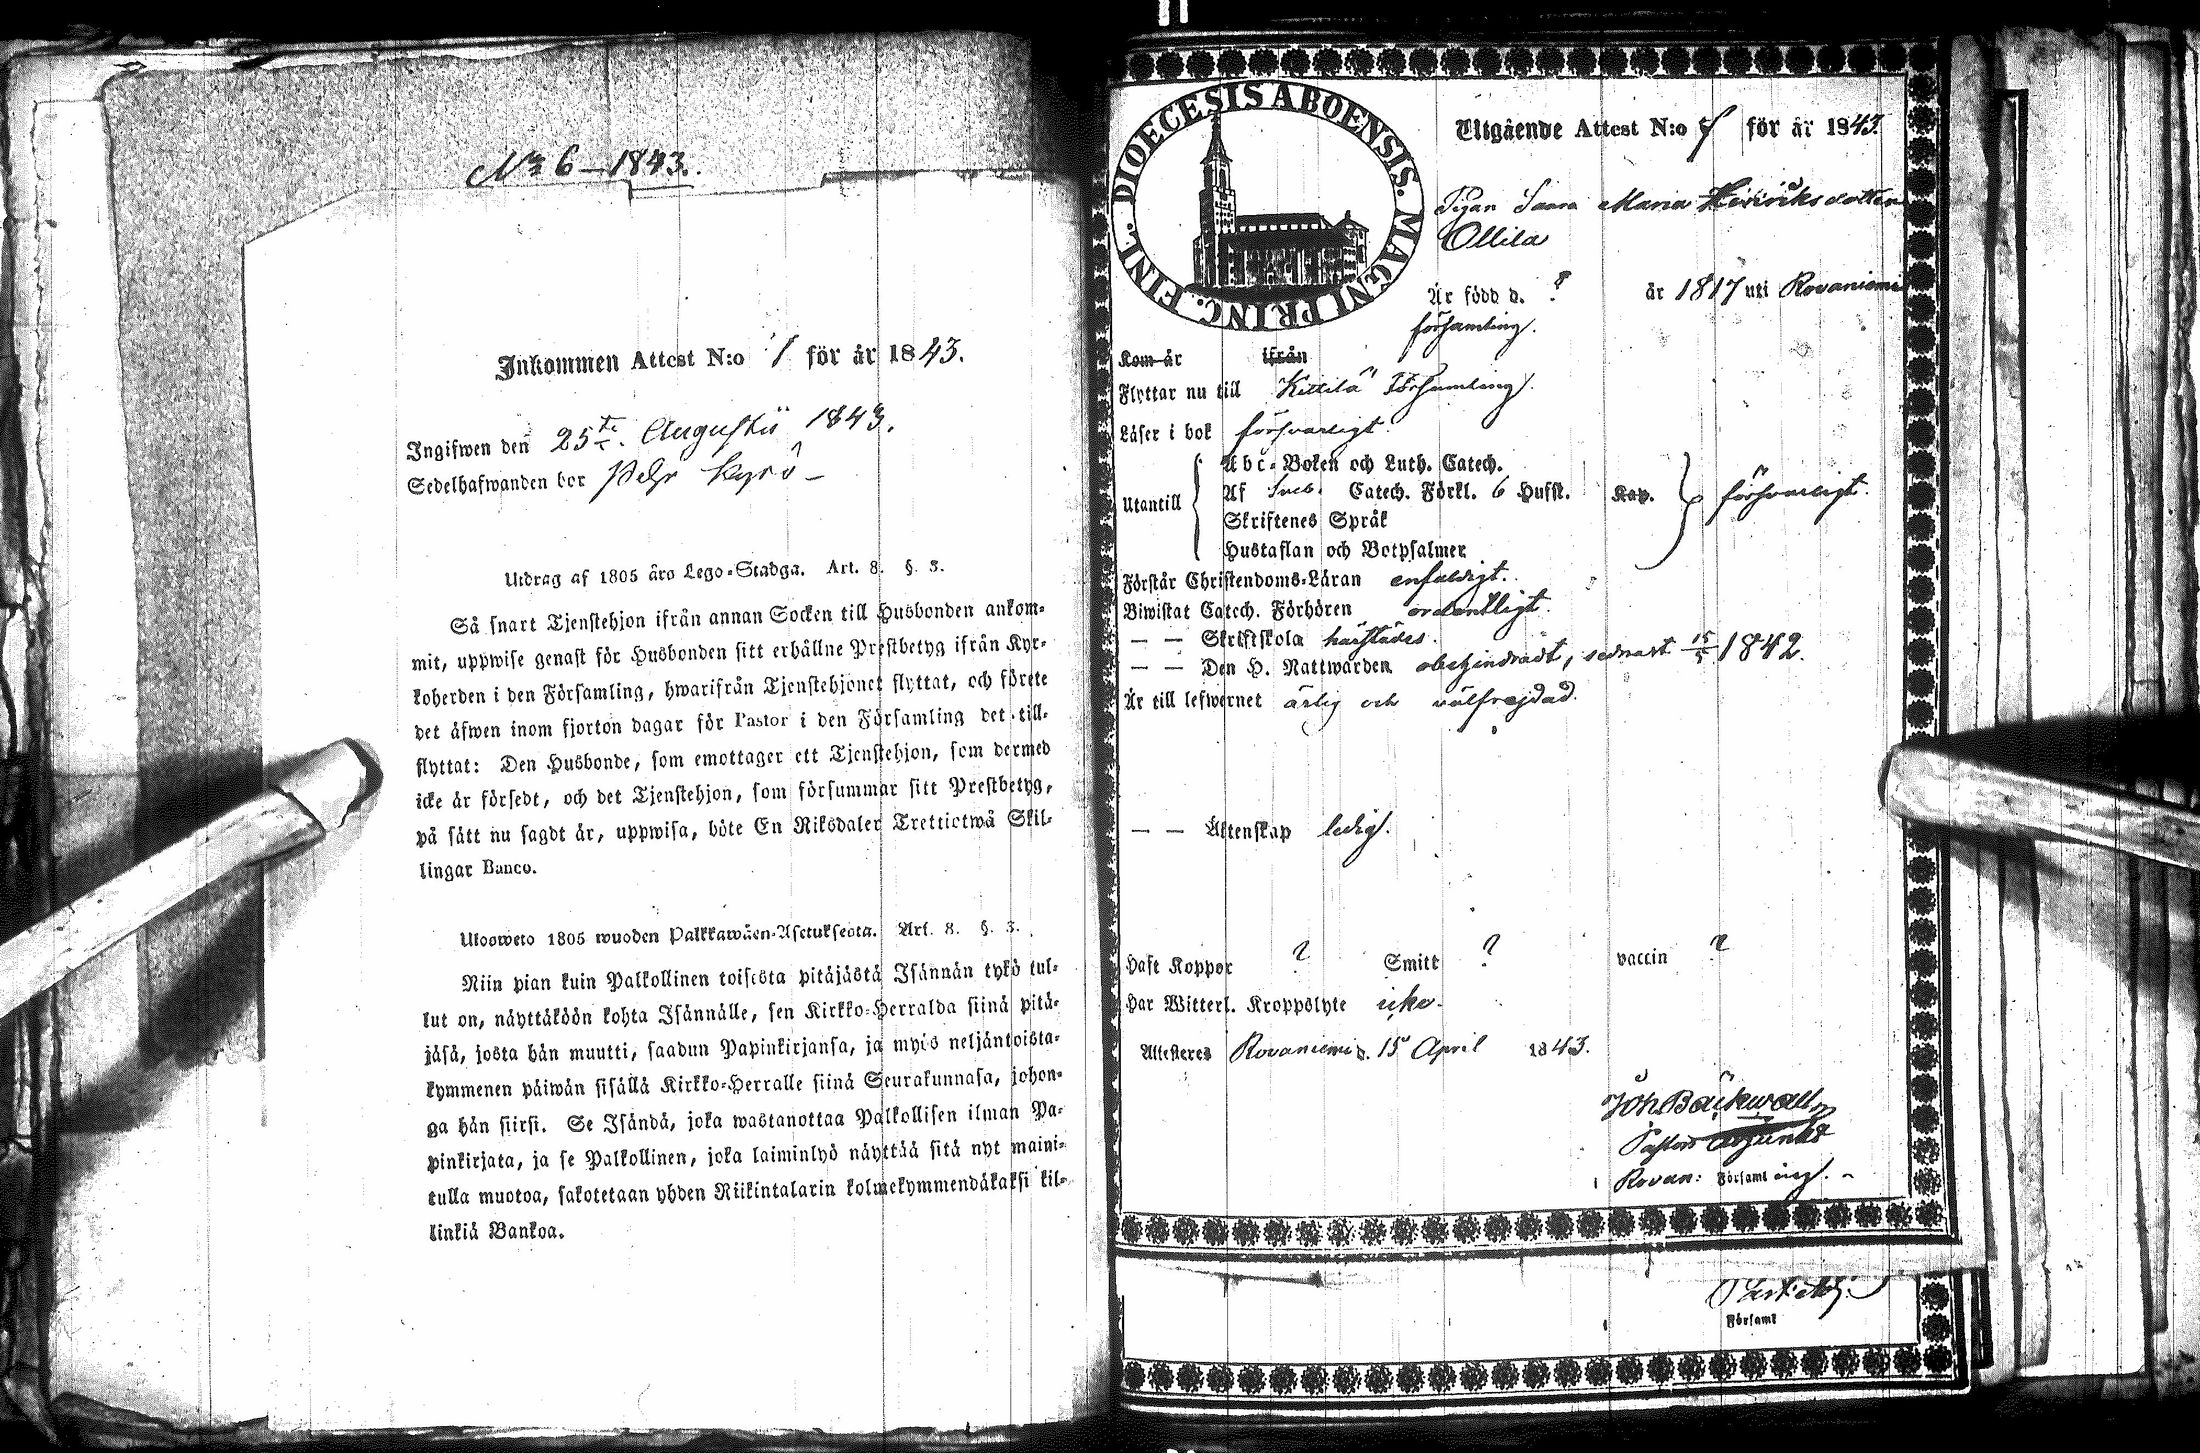 No 6 – 1843.
Inkommen Attest N:o 1 för år 1843.
Ingifwen den 25te Augustii 1843.
Sedelhafwanden bor Pehr Kyrö –
Utdrag af 1805 års Lego-Stadga. Art. 8. §. 3.
Så snart Tjenstehjon ifrån annan Socken till Husbonden ankom-
mit, uppwise genast för Husbonden sitt erhållne Prestbetyg ifrån Kyr-
koherden i den Församling, hwarifrån Tjenstehjonet flyttat, och förete
det äfwen inom fjorton dagar för Pastor i den Församling det till-
flyttat: Den Husbonde, som emottager ett Tjenstehjon, som dermed
icke är försedt, och det Tjenstehjon, som försummar sitt Prestbetyg,
på sätt nu sagdt är, uppwisa, böte En Riksdaler Trettiotwå Skil-
lingar Banco.
Ulosweto 1805 wuoden Palkkawäen-Asetuksesta. Art. 8. §. 3.
Niin pian kuin Palkollinen toisesta pitäjästä Isännän tykö tul-
lut on, näyttäköön kohta Isännälle, sen Kirkko-Herralda siinä pitä-
jäsä, josta hän muutti, saadun Papinkirjansa, ja myös neljäntoista-
kymmenen päiwän sisällä Kirkko-Herralle siinä Seurakunnasa, johon-
ga hän siirsi. Se Isändä, joka wastanottaa Palkollisen ilman Pa-
pinkirjata, ja se Palkollinen, joka laiminlyö näyttää sitä nyt maini-
tulla muotoa, sakotetaan yhden Riikintalarin kolmekymmendäkaksi kil-
linkiä Bankoa.
DIOECESIS ABOENSIS. MAGNI PRINC. FINL.
Utgående Attest N:o för år 1843.
Pigan Saara Maria Henriksdotter
Ollila
Är född d. ? år 1817 uti Rovaniemi
församling.
Kom år ifrån
Flyttar nu till Kittilä Församling.
Läser i bok försvarligt.
Utantill
Abc-Boken och Luth. Catech.
Af Sveb. Catech. Förkl. 6 Hufst. Kap. försvarligt.
Skriftenes Språk
Hustaflan och Botpsalmer
Förstår Christendoms-Läran enfaldigt.
Biwistat Catech. Förhören ordentligt.
— — Skriftskola härstädes.
— — Den H. Nattwarden obehindradt, sednast 15/5 1842.
Är till lefwernet ärlig och välfrejdad.
— — Äktenskap ledig.
Haft Koppor ? Smitt ? vaccin ?
Har Witterl. Kroppslyte icke.
Attesteres Rovaniemi d. 15 April 1843.
Joh. Bäckwall
Pastors Adjunkt
Rovan: Församling.
Församl